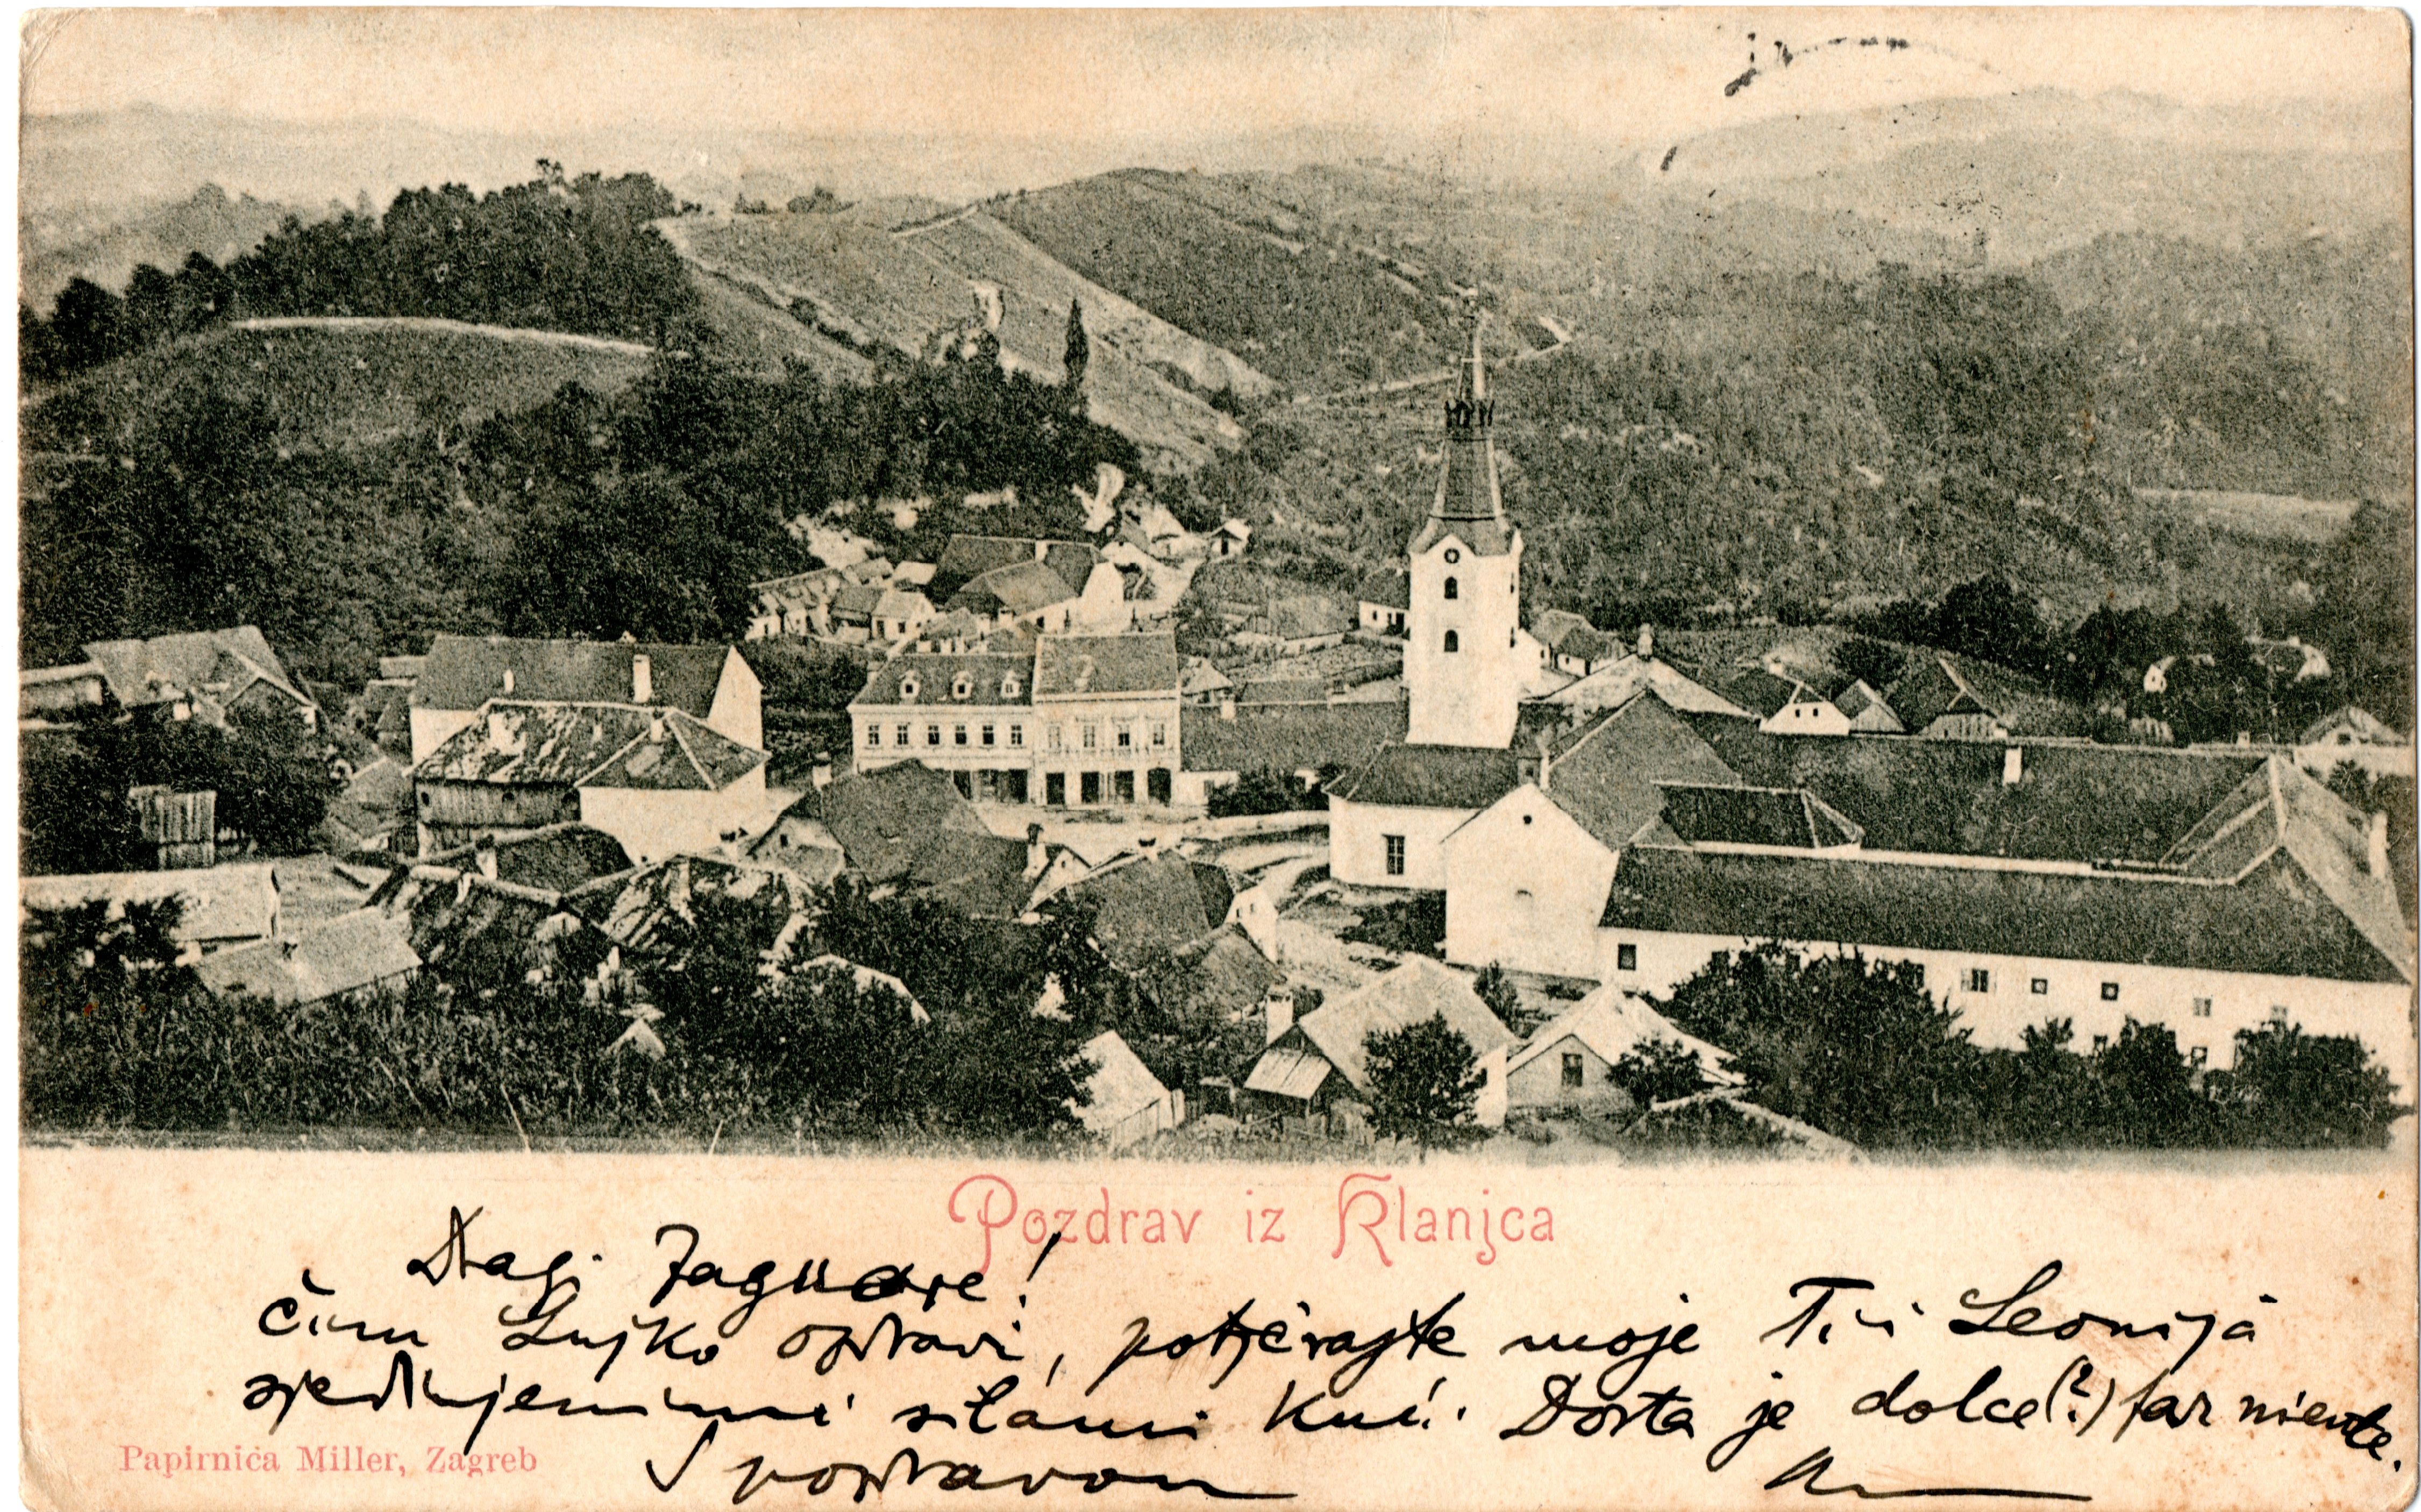 Pozdrav iz Klanjca
Dragi Jaguare!
čim Lujko opravi, potjerajte moje Ti i Leonija
sjedinjenimi silami kući. Dosta je dolce(?) far niente.
S pozdravom
Papirnica Miller, Zagreb